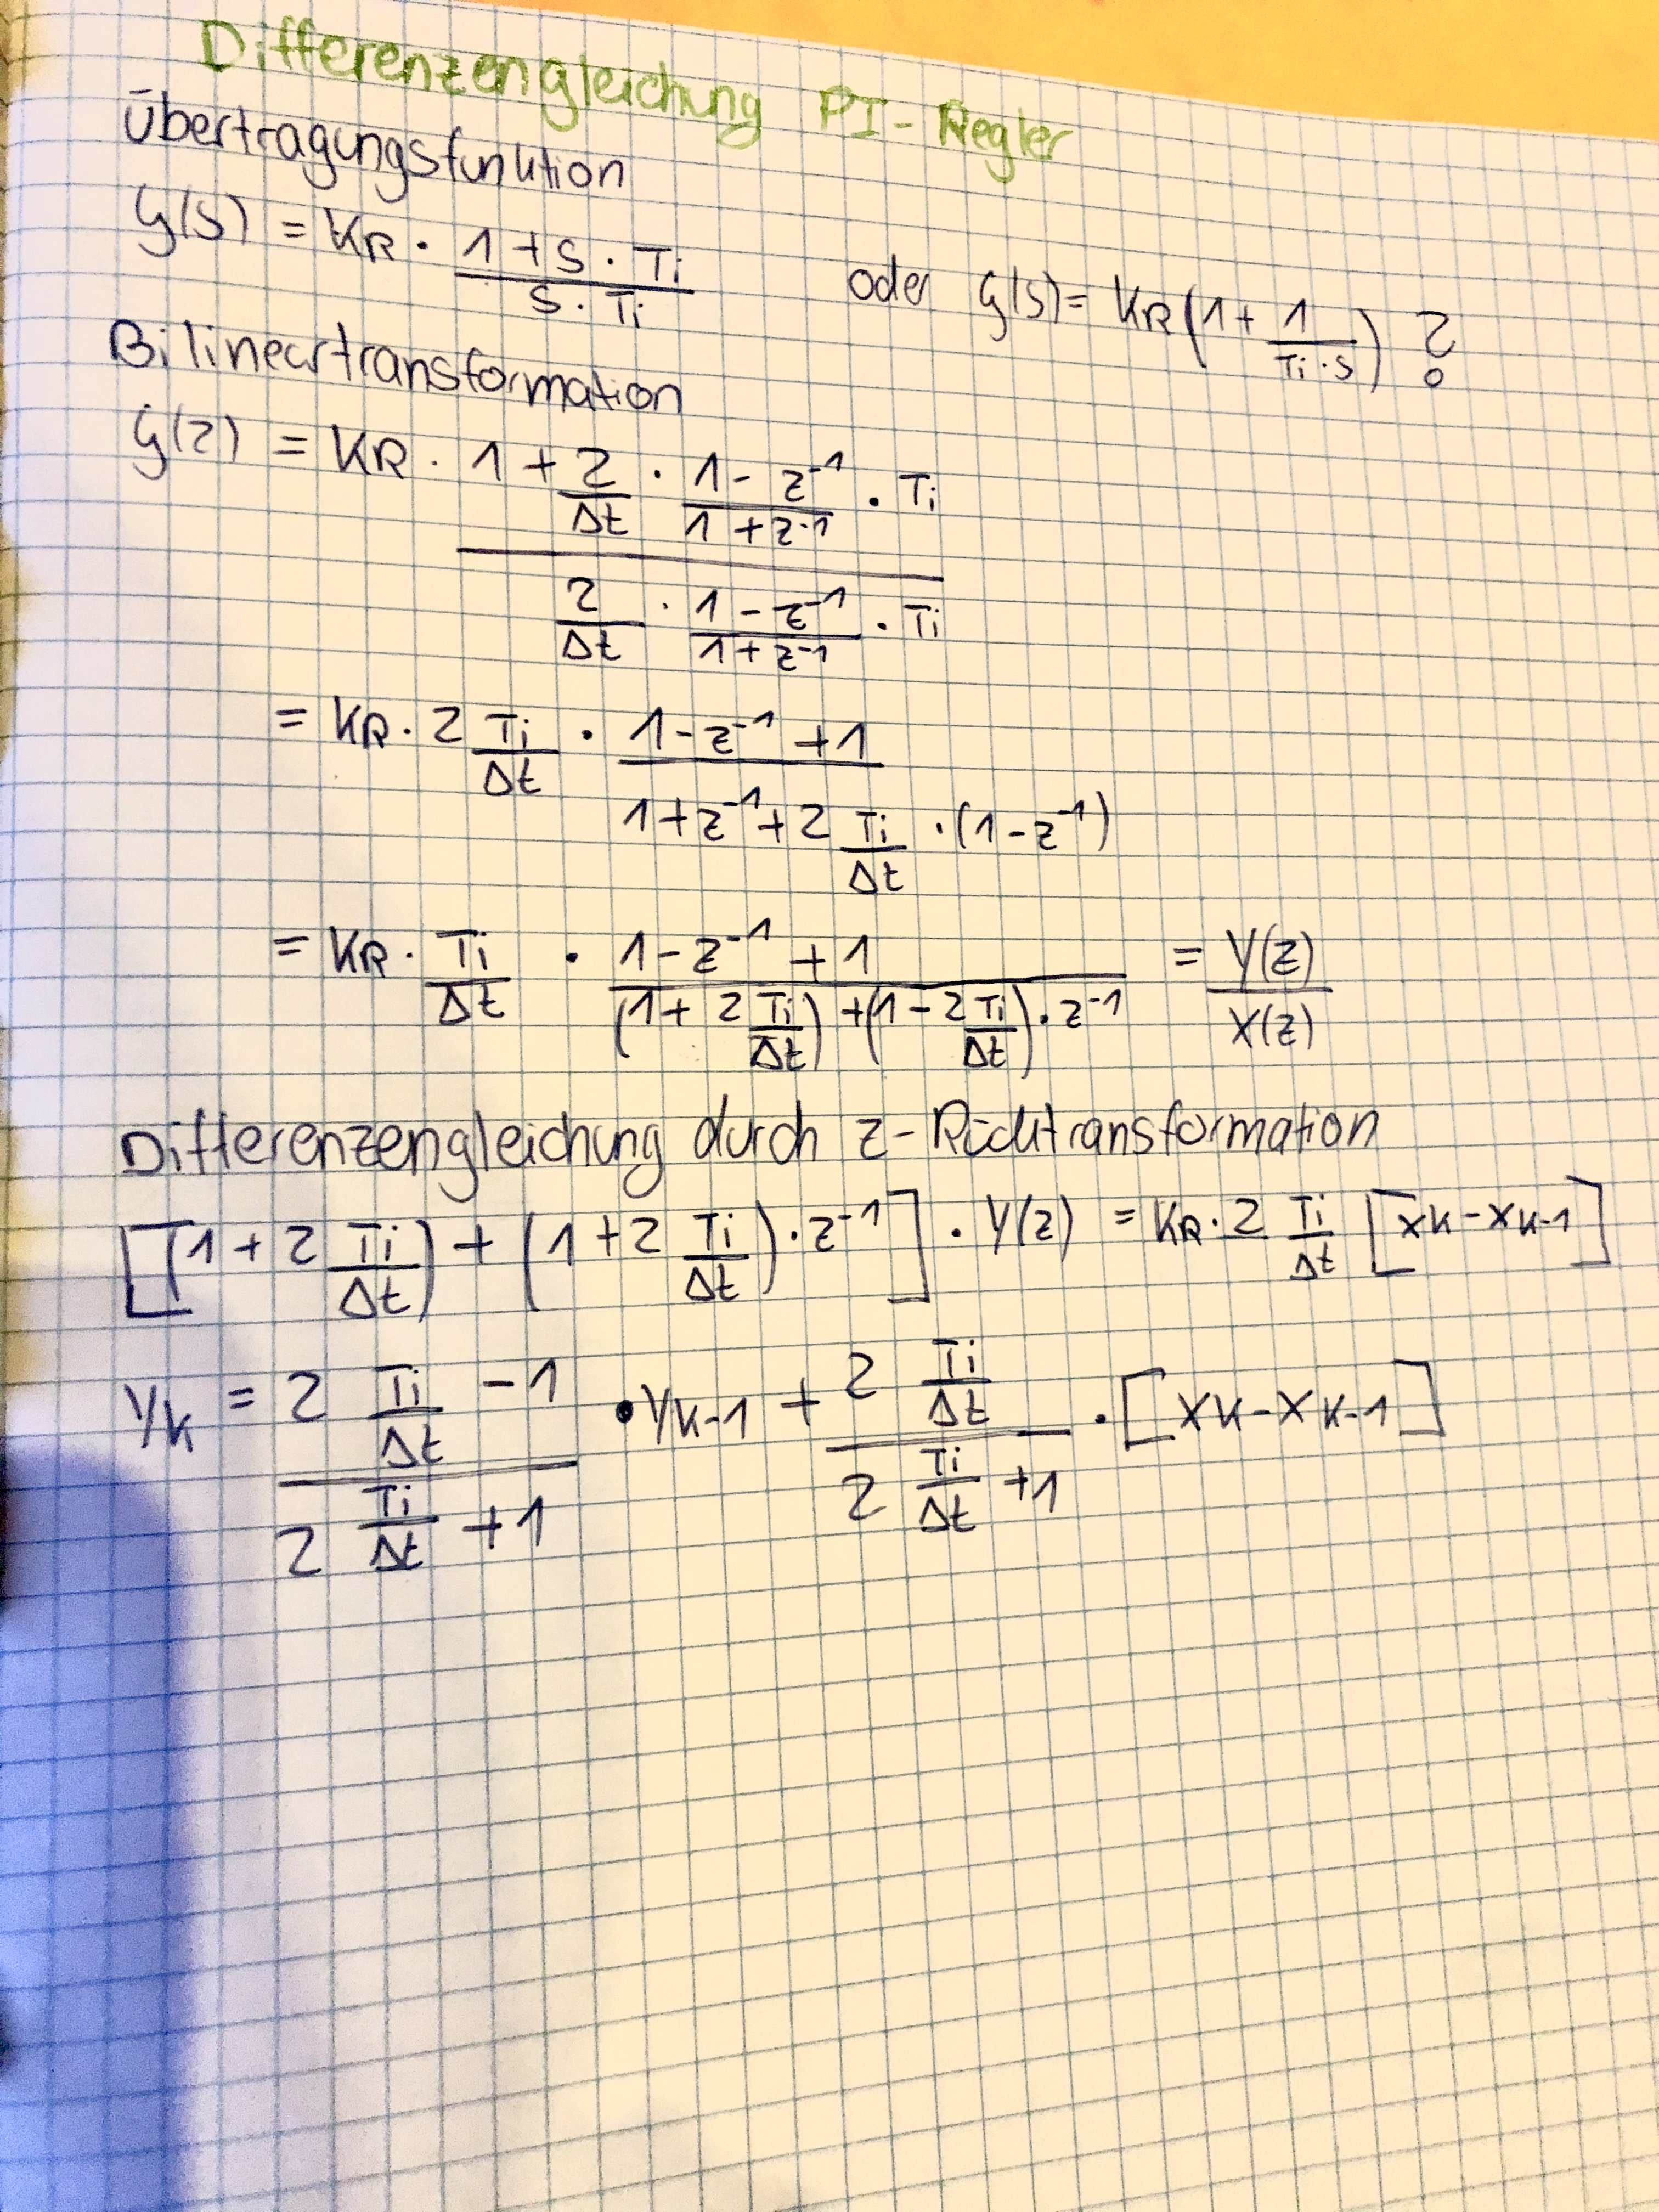 Differenzengleichung PI-Regler
Übertragungsfunktion
G(s) = KR · (1 + s · Ti) / (s · Ti) oder G(s) = KR (1 + 1 / (Ti · s)) ?
Bilineartransformation
G(z) = KR · (1 + 2/Δt · (1 - z⁻¹)/(1 + z⁻¹) · Ti) / (2/Δt · (1 - z⁻¹)/(1 + z⁻¹) · Ti)
= KR · 2 Ti/Δt · (1 - z⁻¹ + 1) / (1 + z⁻¹ + 2 Ti/Δt · (1 - z⁻¹))
= KR · Ti/Δt · (1 - z⁻¹ + 1) / ((1 + 2 Ti/Δt) + (1 - 2 Ti/Δt) · z⁻¹) = Y(z) / X(z)
Differenzengleichung durch z-Rücktransformation
[(1 + 2 Ti/Δt) + (1 + 2 Ti/Δt) · z⁻¹] · Y(z) = KR · 2 Ti/Δt [xk - xk-1]
yk = (2 Ti/Δt - 1) / (2 Ti/Δt + 1) · yk-1 + (2 Ti/Δt) / (2 Ti/Δt + 1) · [xk - xk-1]